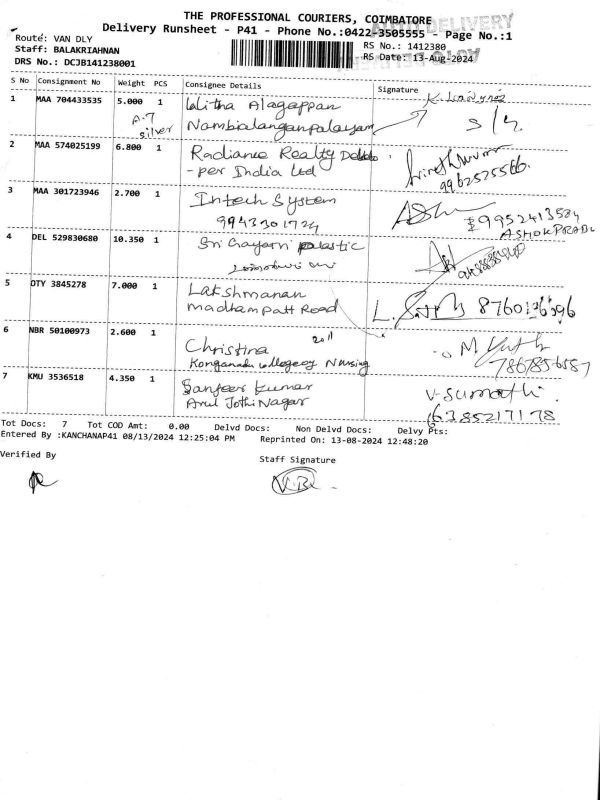 THE PROFESSIONAL COURIERS, COIMBATORE
AUTO DELIVERY
Delivery Runsheet - P41 - Phone No.:0422-3505555 - Page No.:1
Route: VAN DLY
RS No.: 1412380
Staff: BALAKRIAHNAN
RS Date: 13-Aug-2024
DRS No.: DCJB141238001
S No Consignment No Weight PCS Consignee Details Signature
1 MAA 704433535 5.000 1 Lalitha Alagappan
A-7 silver
Nambialaganpalayam
2 MAA 574025199 6.800 1 Radiance Realty
- per India Ltd
9962525566
3 MAA 301723946 2.700 1 Intech System
9952413534
9943301724
ASHOK PRABU
4 DEL 529830680 10.350 1 Sri Gayatri plastic
5 DTY 3845278 7.000 1 Lakshmanan
Madhampatt Road
6 NBR 50100973 2.600 1 Christina
Nursing
7 KMU 3536518 4.350 1 Sanjeev Kumar V. Sumathi
Arul Jothi Nagar 6385217178
Tot Docs: 7 Tot COD Amt: 0.00 Delvd Docs: Non Delvd Docs: Delvy Pts:
Entered By :KANCHANAP41 08/13/2024 12:25:04 PM Reprinted On: 13-08-2024 12:48:20
Verified By
Staff Signature